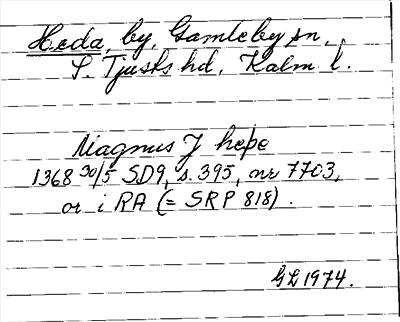 Heda, by, Gamleby sn,
S. Tjusts hd, Kalm. l.
Magnus J heþe
1368 30/5 SD9, s. 395, nr 7703,
or i RA (= SRP 818).
GL 1974.